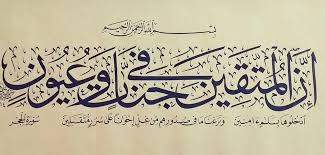 بسم الله الرحمن الرحيم
إن المتقين في جنات وعيون
ادخلوها بسلام آمنين ونزعنا ما في صدورهم من غل إخوانا على سرر متقابلين سورة الحجر